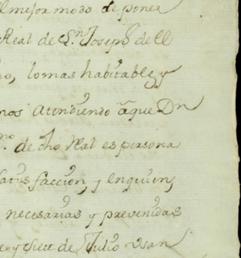 el mejor modo de poner
Real de Sn. Joseph de el
lo mas habitable, y
nos atendiendo a que Dn
no. de dho Real es persona
satisfaccion, y en quien
necesarias y prevenidas
y siete de Julio